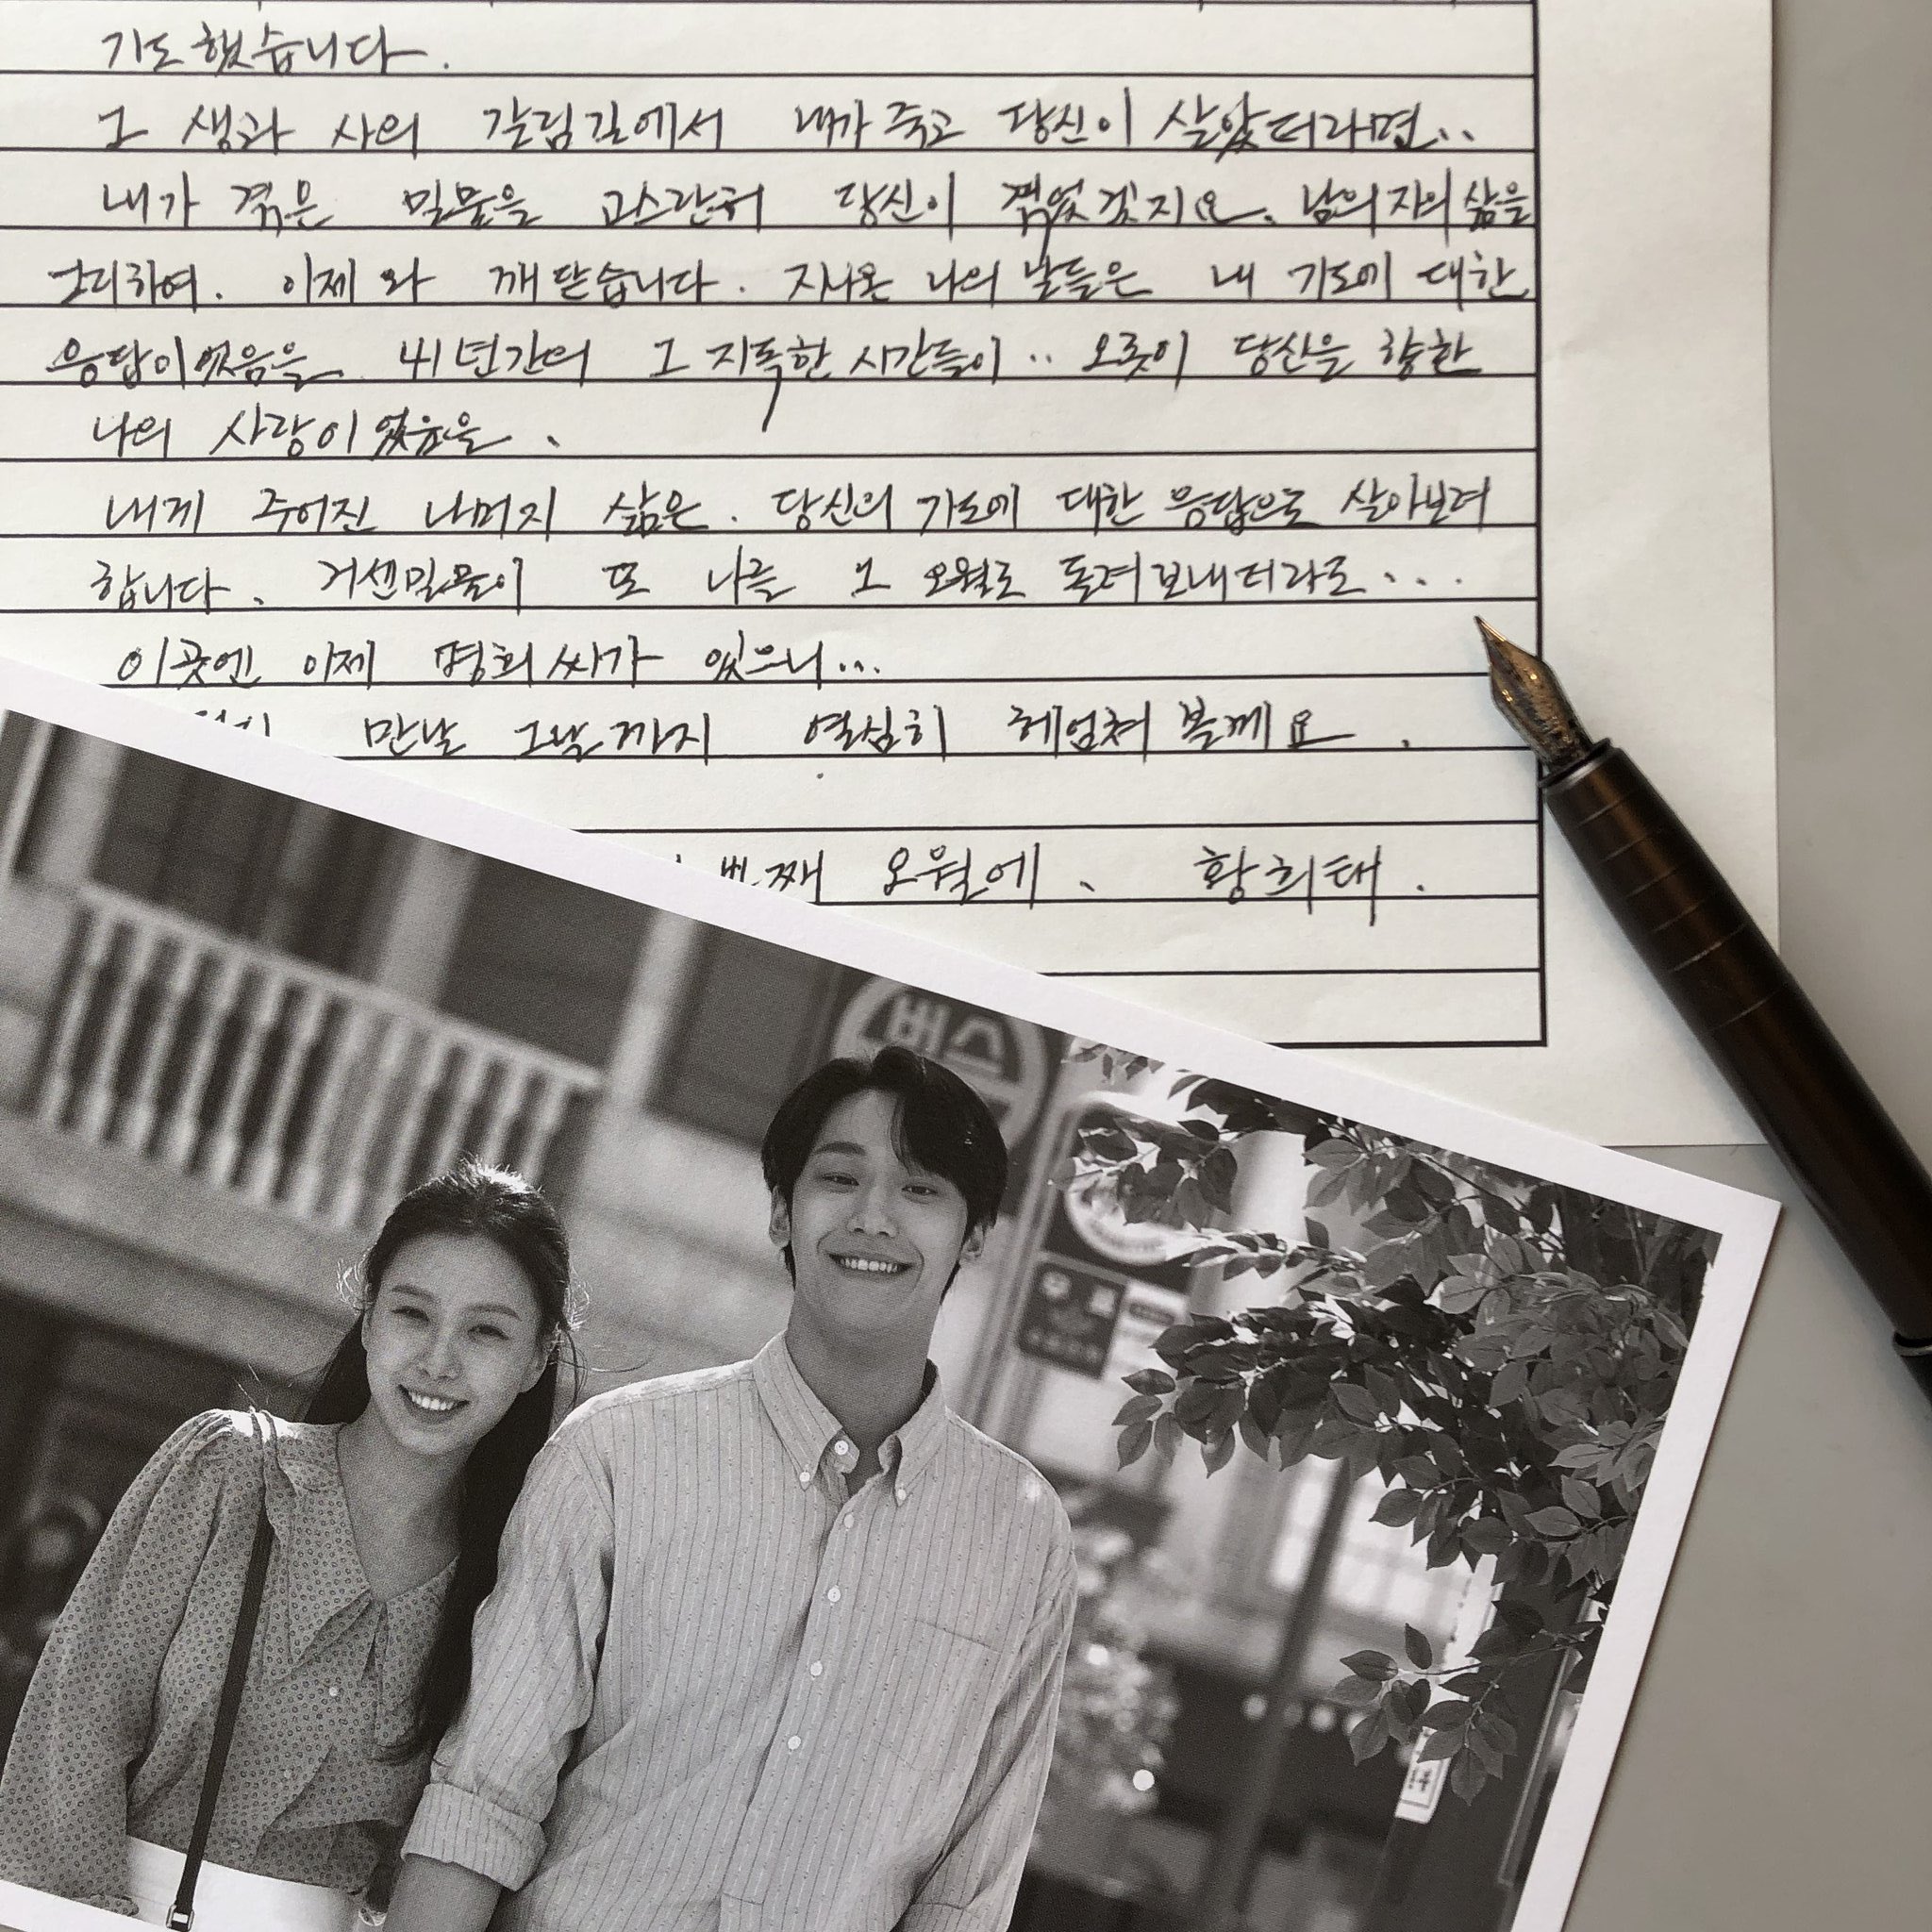 기도했습니다.
그 생과 사의 갈림길에서 내가 죽고 당신이 살았더라면..
내가 겪은 밀물을 고스란히 당신이 겪었겠지요. 남은 자의 삶을
그리하여. 이제와 깨닫습니다. 지나온 나의 날들은 내 기도에 대한
응답이었음을 41년간의 그 지독한 시간들이.. 오롯이 당신을 향한
나의 사랑이었음을.
내게 주어진 나머지 삶은. 당신의 기도에 대한 응답으로 살아보려
합니다. 거센밀물이 또 나를 그 오월로 돌려보내더라도...
이곳엔 이제 명희씨가 있으니...
만날 그날까지 열심히 헤엄쳐볼께요.
번째 오월에. 황희태.
버스